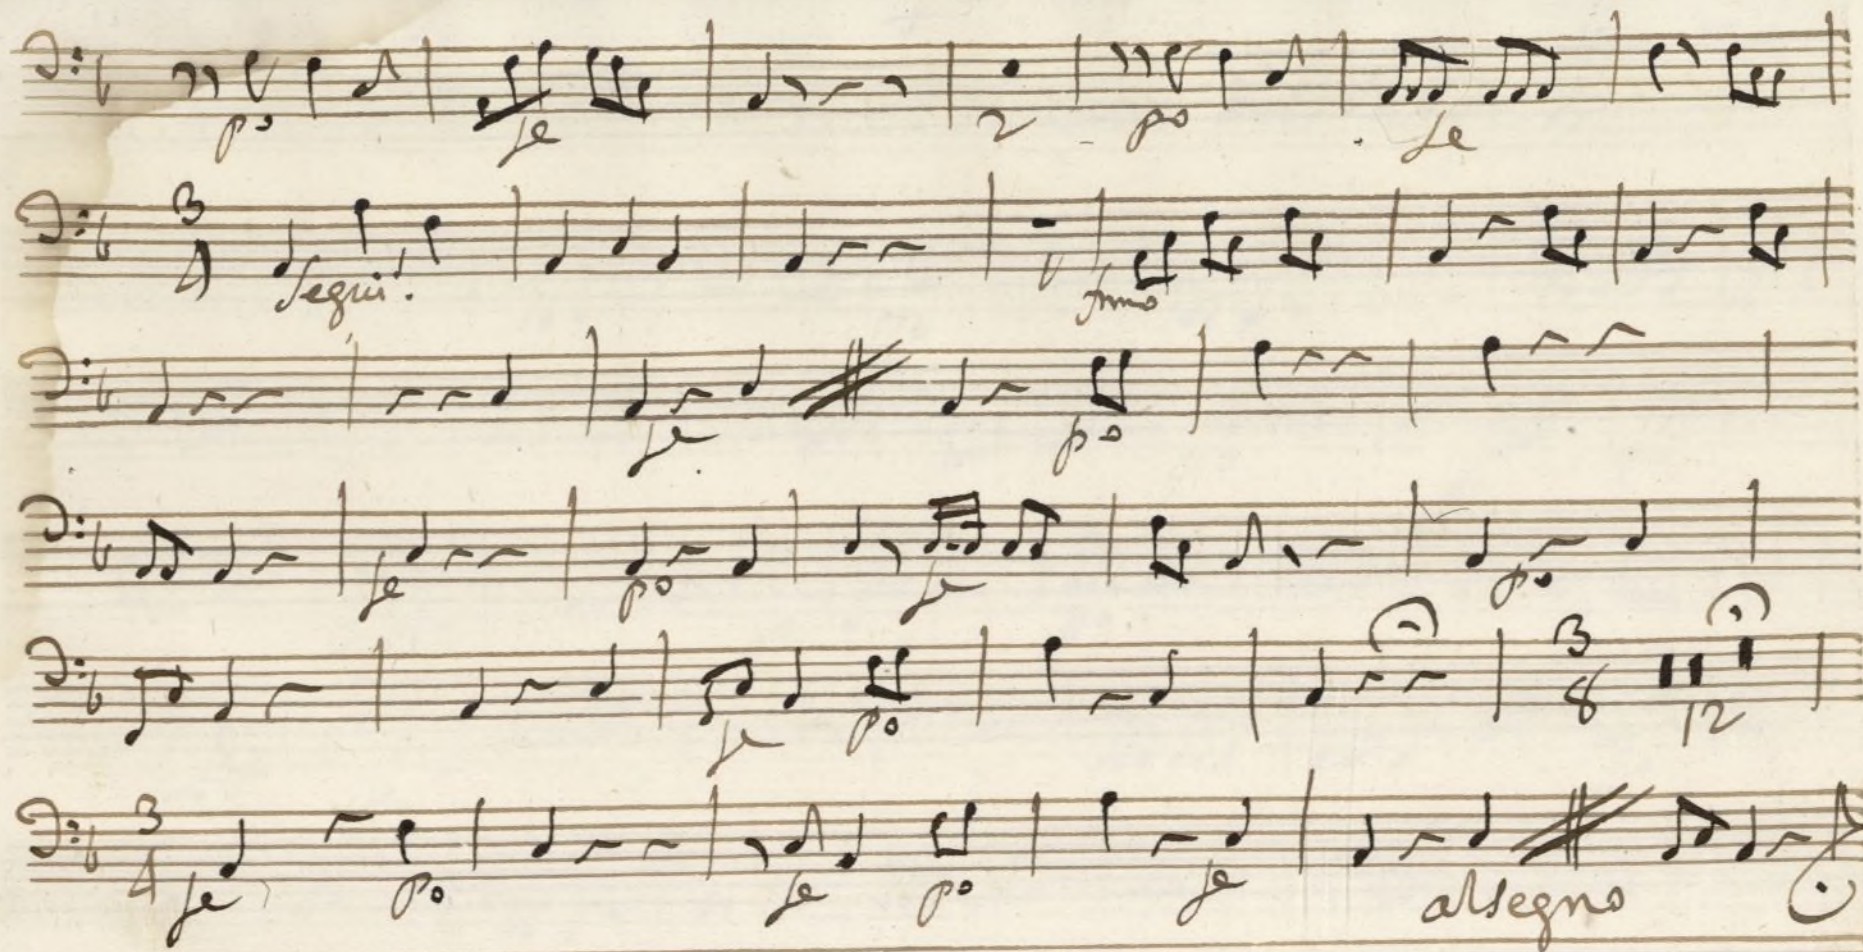 po fe 2 po fe
3 4 Segui! 1 Anno
fe po
fe po fe po
fe po 3 8 12
3 4 fe po fe po fe alsegno